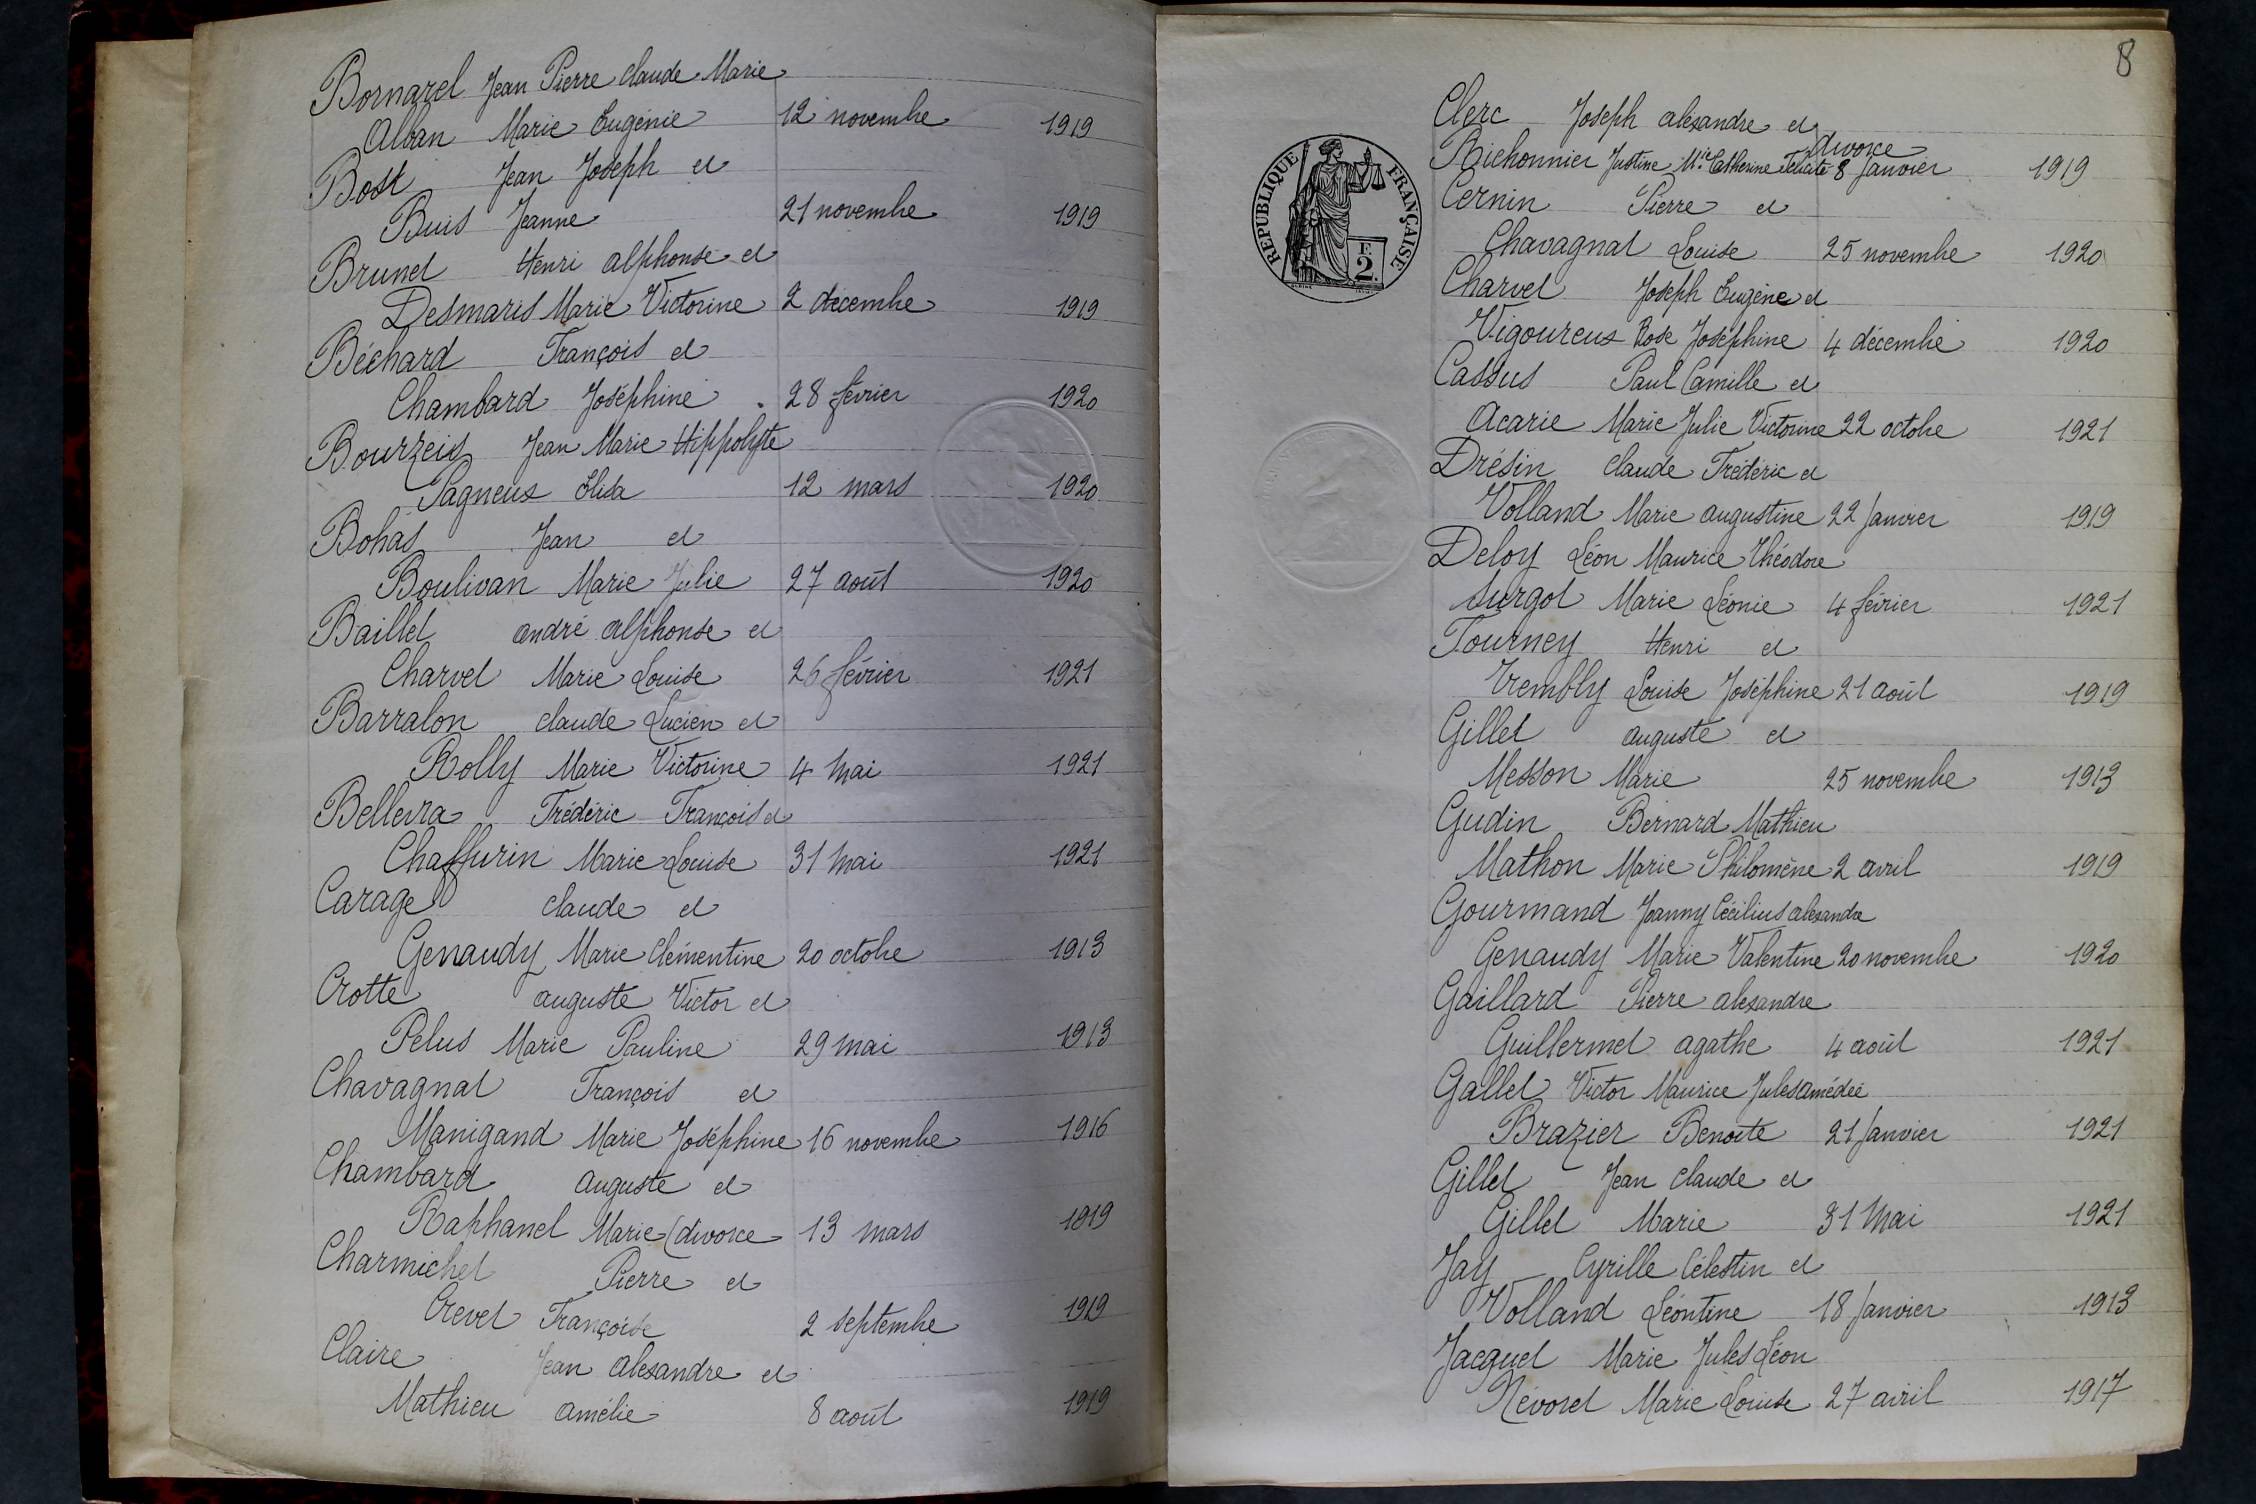 Bornarel Jean Pierre Claude Marie
Alban Marie Eugénie 12 novembre 1919
Bost Jean Joseph et
Buis Jeanne 21 novembre 1919
Brunet Henri Alphonse et
Desmaris Marie Victorine 2 décembre 1919
Béchard François et
Chambard Joséphine 28 février 1920
Bourzeis Jean Marie Hippolyte
Pagneux Elisa 12 mars 1920
Bohas Jean et
Boulivan Marie Julie 27 août 1920
Baillet André Alphonse et
Charvet Marie Louise 26 février 1921
Barralon Claude Lucien et
Rolly Marie Victorine 4 Mai 1921
Frédéric François et
Chaffurin Marie Louise 31 Mai 1921
Carage Claude et
Genaudy Marie Clémentine 20 octobre 1913
Crotte Auguste Victor et
Pelus Marie Pauline 29 Mai 1913
Chavagnat François et
Manigand Marie Joséphine 16 novembre 1916
Chambard Auguste et
Raphanel Marie (divorce 13 mars 1919
Charmichel Pierre et
Crevel Françoise 2 septembre 1919
Claire Jean Alexandre et
Mathieu Amélie 8 août 1919
8
REPUBLIQUE FRANÇAISE
F
2
Clerc Joseph Alexandre et
divorce
Richonnier Justine Mie Catherine Félicité 8 Janvier 1919
Cernin Pierre et
Chavagnat Louise 25 novembre 1920
Charvet Joseph Eugène et
Vigoureux Rose Joséphine 4 décembre 1920
Cassus Paul Camille et
Acarie Marie Julie Victorine 22 octobre 1921
Drésin Claude Frédéric et
Volland Marie Augustine 22 Janvier 1919
Deloy Léon Maurice Théodore
Surgot Marie Léonie 4 février 1921
Fourney Henri et
Trembly Louise Joséphine 21 août 1919
Gillet Auguste et
Messon Marie 25 novembre 1913
Gudin Bernard Mathieu
Mathon Marie Philomène 2 avril 1919
Gourmand Joanny Cécilius Alexandre
Genaudy Marie Valentine 20 novembre 1920
Gaillard Pierre Alexandre
Guillermet Agathe 4 août 1921
Gallet Victor Maurice Jules Amédée
Brazier Benoite 21 Janvier 1921
Gillet Jean Claude et
Gillet Marie 31 Mai 1921
Jay Cyrille Célestin et
Volland Léontine 18 Janvier 1913
Jacquet Marie Jules Léon
Névoret Marie Louise 27 avril 1917